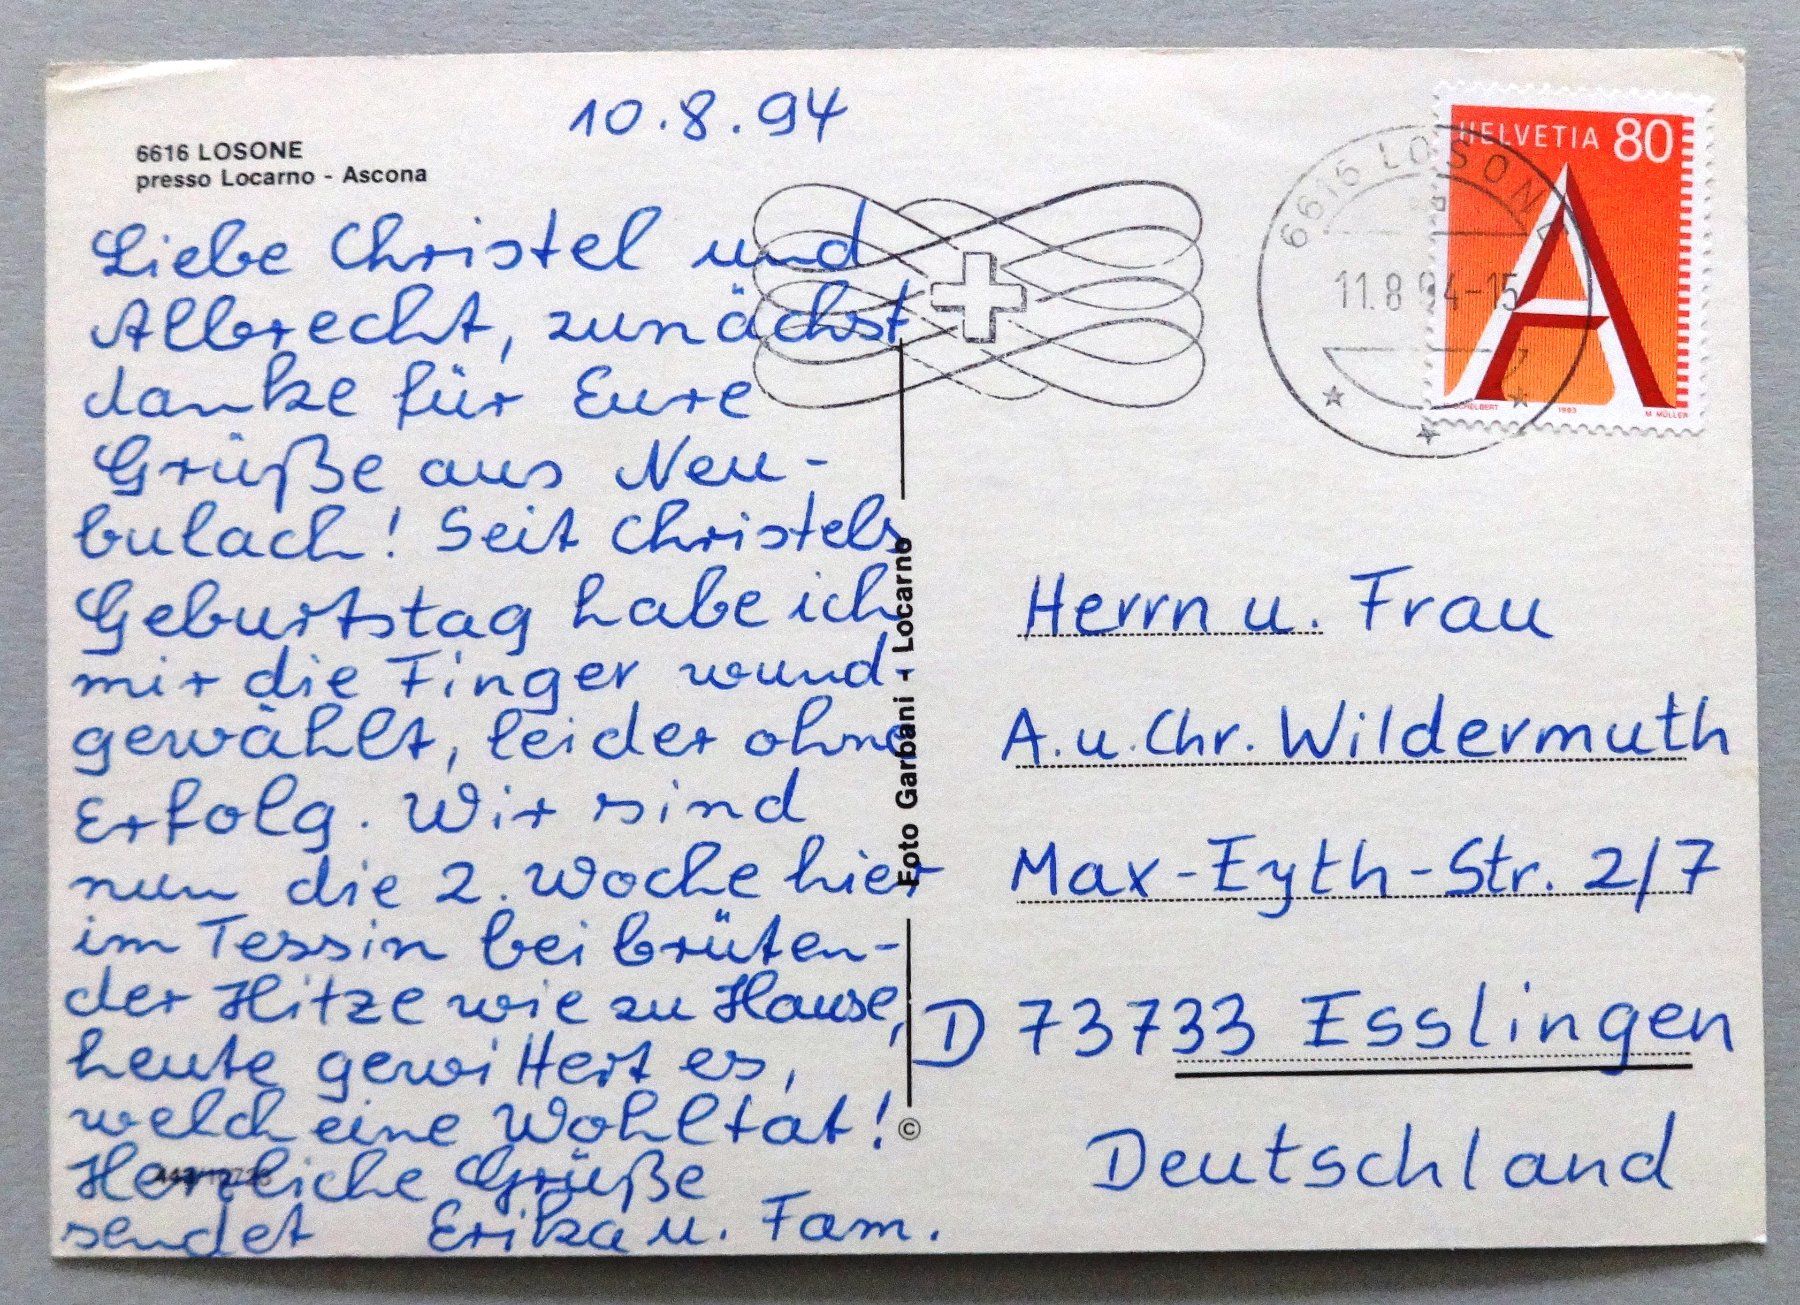 10.8.94
6616 LOSONE
presso Locarno - Ascona
Liebe Christel und
Albrecht, zunächst
danke für Eure
Grüße aus Neu-
bulach! Seit Christels
Geburtstag habe ich
mir die Finger wund-
gewählt, leider ohne
Erfolg. Wir sind
nun die 2. Woche hier
im Tessin bei brüten-
der Hitze wie zu Hause,
heute gewittert es,
welch eine Wohltat!
Herzliche Grüße
sendet Erika u. Fam.
Foto Garbani - Locarno
©
HELVETIA 80
A
1993
M. MÜLLER
6616 LOSONE
11.8.94-15
Herrn u. Frau
A. u. Chr. Wildermuth
Max-Eyth-Str. 2/7
D 73733 Esslingen
Deutschland